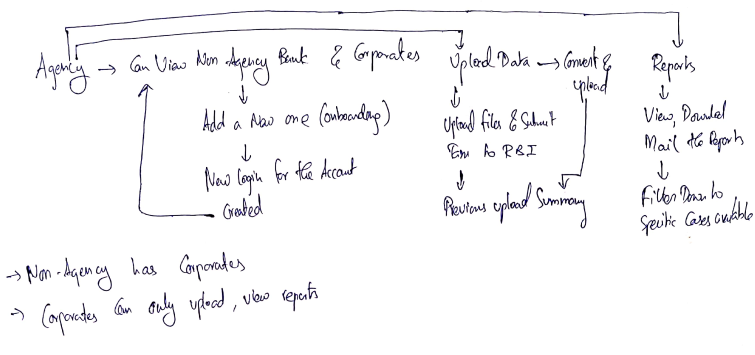 Agency → Can View Non-Agency Bank & Corporates
Add a New one (onboarding)
New login for the Account
Created
Upload Data → Convert &
upload
Upload files & Submit
to RBI
Previous upload Summary
Reports
View, Download
Mail the Reports
Filter Down to
Specific Cases available
→ Non-Agency has Corporates
→ Corporates Can only upload, view reports